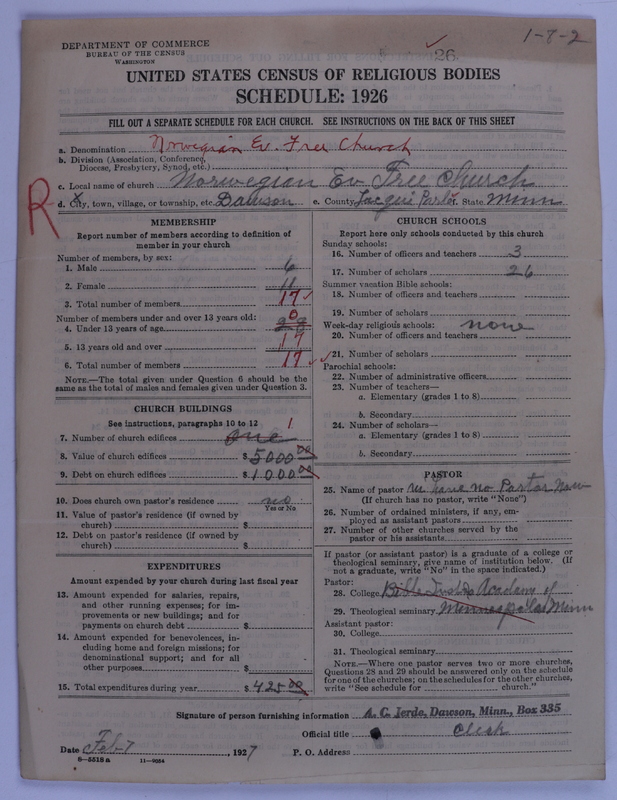 1-7-2
26
DEPARTMENT OF COMMERCE
BUREAU OF THE CENSUS
WASHINGTON
UNITED STATES CENSUS OF RELIGIOUS BODIES
SCHEDULE: 1926
FILL OUT A SEPARATE SCHEDULE FOR EACH CHURCH. SEE INSTRUCTIONS ON THE BACK OF THIS SHEET
a. Denomination Norwegian Ev. Free Church
b. Division (Association, Conference, Diocese, Presbytery, Synod, etc.)
c. Local name of church Norwegian Ev Free Church
R
d. City, town, village, or township, etc. Dawson e. County Lacqui Parle f. State Minn
MEMBERSHIP
Report number of members according to definition of
member in your church
Number of members, by sex:
1. Male 6
2. Female 11
3. Total number of members 17
Number of members under and over 13 years old: 0
4. Under 13 years of age
5. 13 years old and over 17
6. Total number of members 17
NOTE.—The total given under Question 6 should be the
same as the total of males and females given under Question 3.
CHURCH BUILDINGS
See instructions, paragraphs 10 to 12 1
7. Number of church edifices one
8. Value of church edifices $ 5000 00
9. Debt on church edifices $ 1000 00
10. Does church own pastor's residence no
Yes or No
11. Value of pastor's residence (if owned by
church) $
12. Debt on pastor's residence (if owned by
church) $
EXPENDITURES
Amount expended by your church during last fiscal year
13. Amount expended for salaries, repairs,
and other running expenses; for im-
provements or new buildings; and for
payments on church debt $
14. Amount expended for benevolences, in-
cluding home and foreign missions; for
denominational support; and for all
other purposes $
15. Total expenditures during year $ 425 00
CHURCH SCHOOLS
Report here only schools conducted by this church
Sunday schools:
16. Number of officers and teachers 3
17. Number of scholars 26
Summer vacation Bible schools:
18. Number of officers and teachers
19. Number of scholars
Week-day religious schools: none
20. Number of officers and teachers
21. Number of scholars
Parochial schools:
22. Number of administrative officers
23. Number of teachers—
a. Elementary (grades 1 to 8)
b. Secondary
24. Number of scholars—
a. Elementary (grades 1 to 8)
b. Secondary
PASTOR
25. Name of pastor We have no Pastor Now
(If church has no pastor, write "None")
26. Number of ordained ministers, if any, em-
ployed as assistant pastors
27. Number of other churches served by the
pastor or his assistants
If pastor (or assistant pastor) is a graduate of a college or
theological seminary, give name of institution below. (If
not a graduate, write "No" in the space indicated.)
Pastor:
28. College Bible Academy of
29. Theological seminary Minneapolis Minn
Assistant pastor:
30. College
31. Theological seminary
NOTE.—Where one pastor serves two or more churches,
Questions 28 and 29 should be answered only on the schedule
for one of the churches; on the schedules for the other churches,
write "See schedule for church."
Signature of person furnishing information A. C. Jerde, Dawson, Minn., Box 335
Official title Clerk
Date Feb 7, 1927 P. O. Address
8-5518a 11-9054